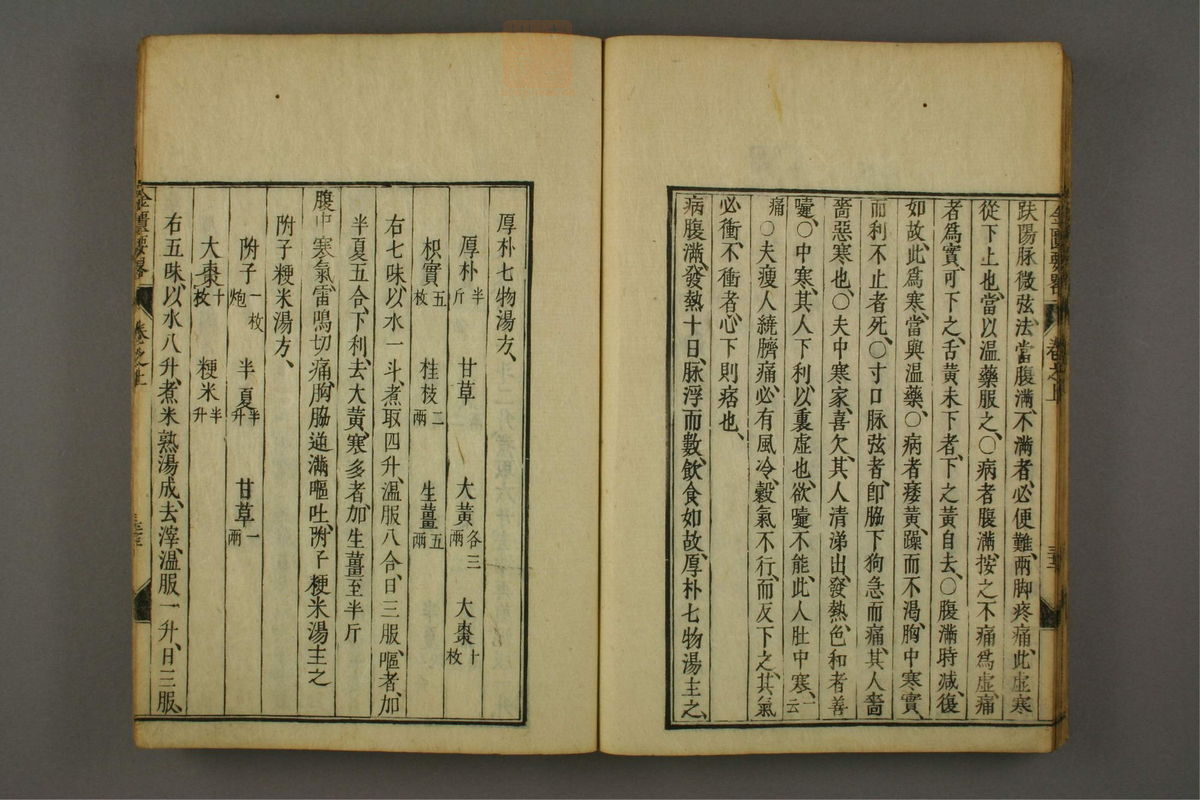 趺陽脉微弦法當腹滿、不滿者必便難、兩脚疼痛、此虛寒
從下上也、當以温藥服之、〇病者腹滿、按之不痛爲虛、痛
者爲實、可下之、舌黄未下者、下之黄自去、〇腹滿時减、復
如故、此爲寒、當與温藥、〇病者痿黄、躁而不渴、胸中寒實、
而利不止者死、〇寸口脉弦者、卽脇下狗急而痛、其人嗇
嗇惡寒也、〇夫中寒家、喜欠、其人清涕出、發熱、色和者善
嚏、〇中寒、其人下利、以裏虛也、欲嚏不能、此人肚中寒、一云
痛〇夫瘦人繞臍痛、必有風冷、穀氣不行、而反下之、其氣
必衝、不衝者、心下則痞也、
病腹滿、發熱十日、脉浮而數、飲食如故、厚朴七物湯主之、
金匱要畧 卷之上
厚朴七物湯方、
厚朴半斤 甘草 大黄各三兩 大棗十枚
枳實五枚 桂枝二兩 生薑五兩
右七味、以水一斗、煮取四升、温服八合、日三服、嘔者、加
半夏五合、下利、去大黄、寒多者、加生薑至半斤
腹中寒氣、雷鳴切痛、胸脇逆滿、嘔吐、附子粳米湯主之
附子粳米湯方、
附子一枚炮 半夏半升 甘草一兩
大棗十枚 粳米半升
右五味、以水八升、煮米熟、湯成、去滓、温服一升、日三服、
金匱要畧 卷之上